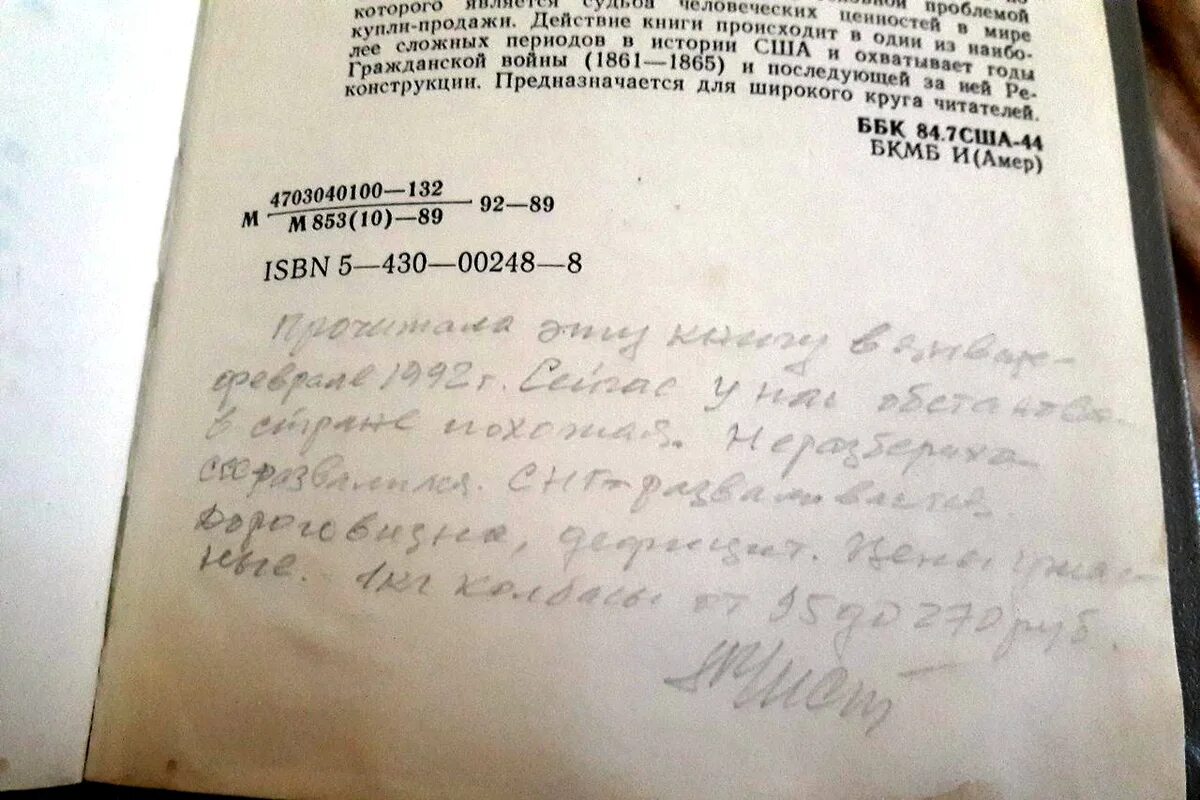 которого является судьба человеческих ценностей в мире
купли-продажи. Действие книги происходит в один из наибо-
лее сложных периодов в истории США и охватывает годы
Гражданской войны (1861—1865) и последующей за ней Ре-
конструкции. Предназначается для широкого круга читателей.
ББК 84.7США-44
БКМБ И(Амер)
М 4703040100—132
М 853(10)—89 92—89
ISBN 5—430—00248—8
Прочитала эту книгу в январе-
феврале 1992 г. Сейчас у нас обстановка
в стране похожая. Неразбериха
развалился. СНГ - разваливается.
Дороговизна, дефицит. Цены ужас-
ные. 1кг колбасы от 95 до 270 руб.